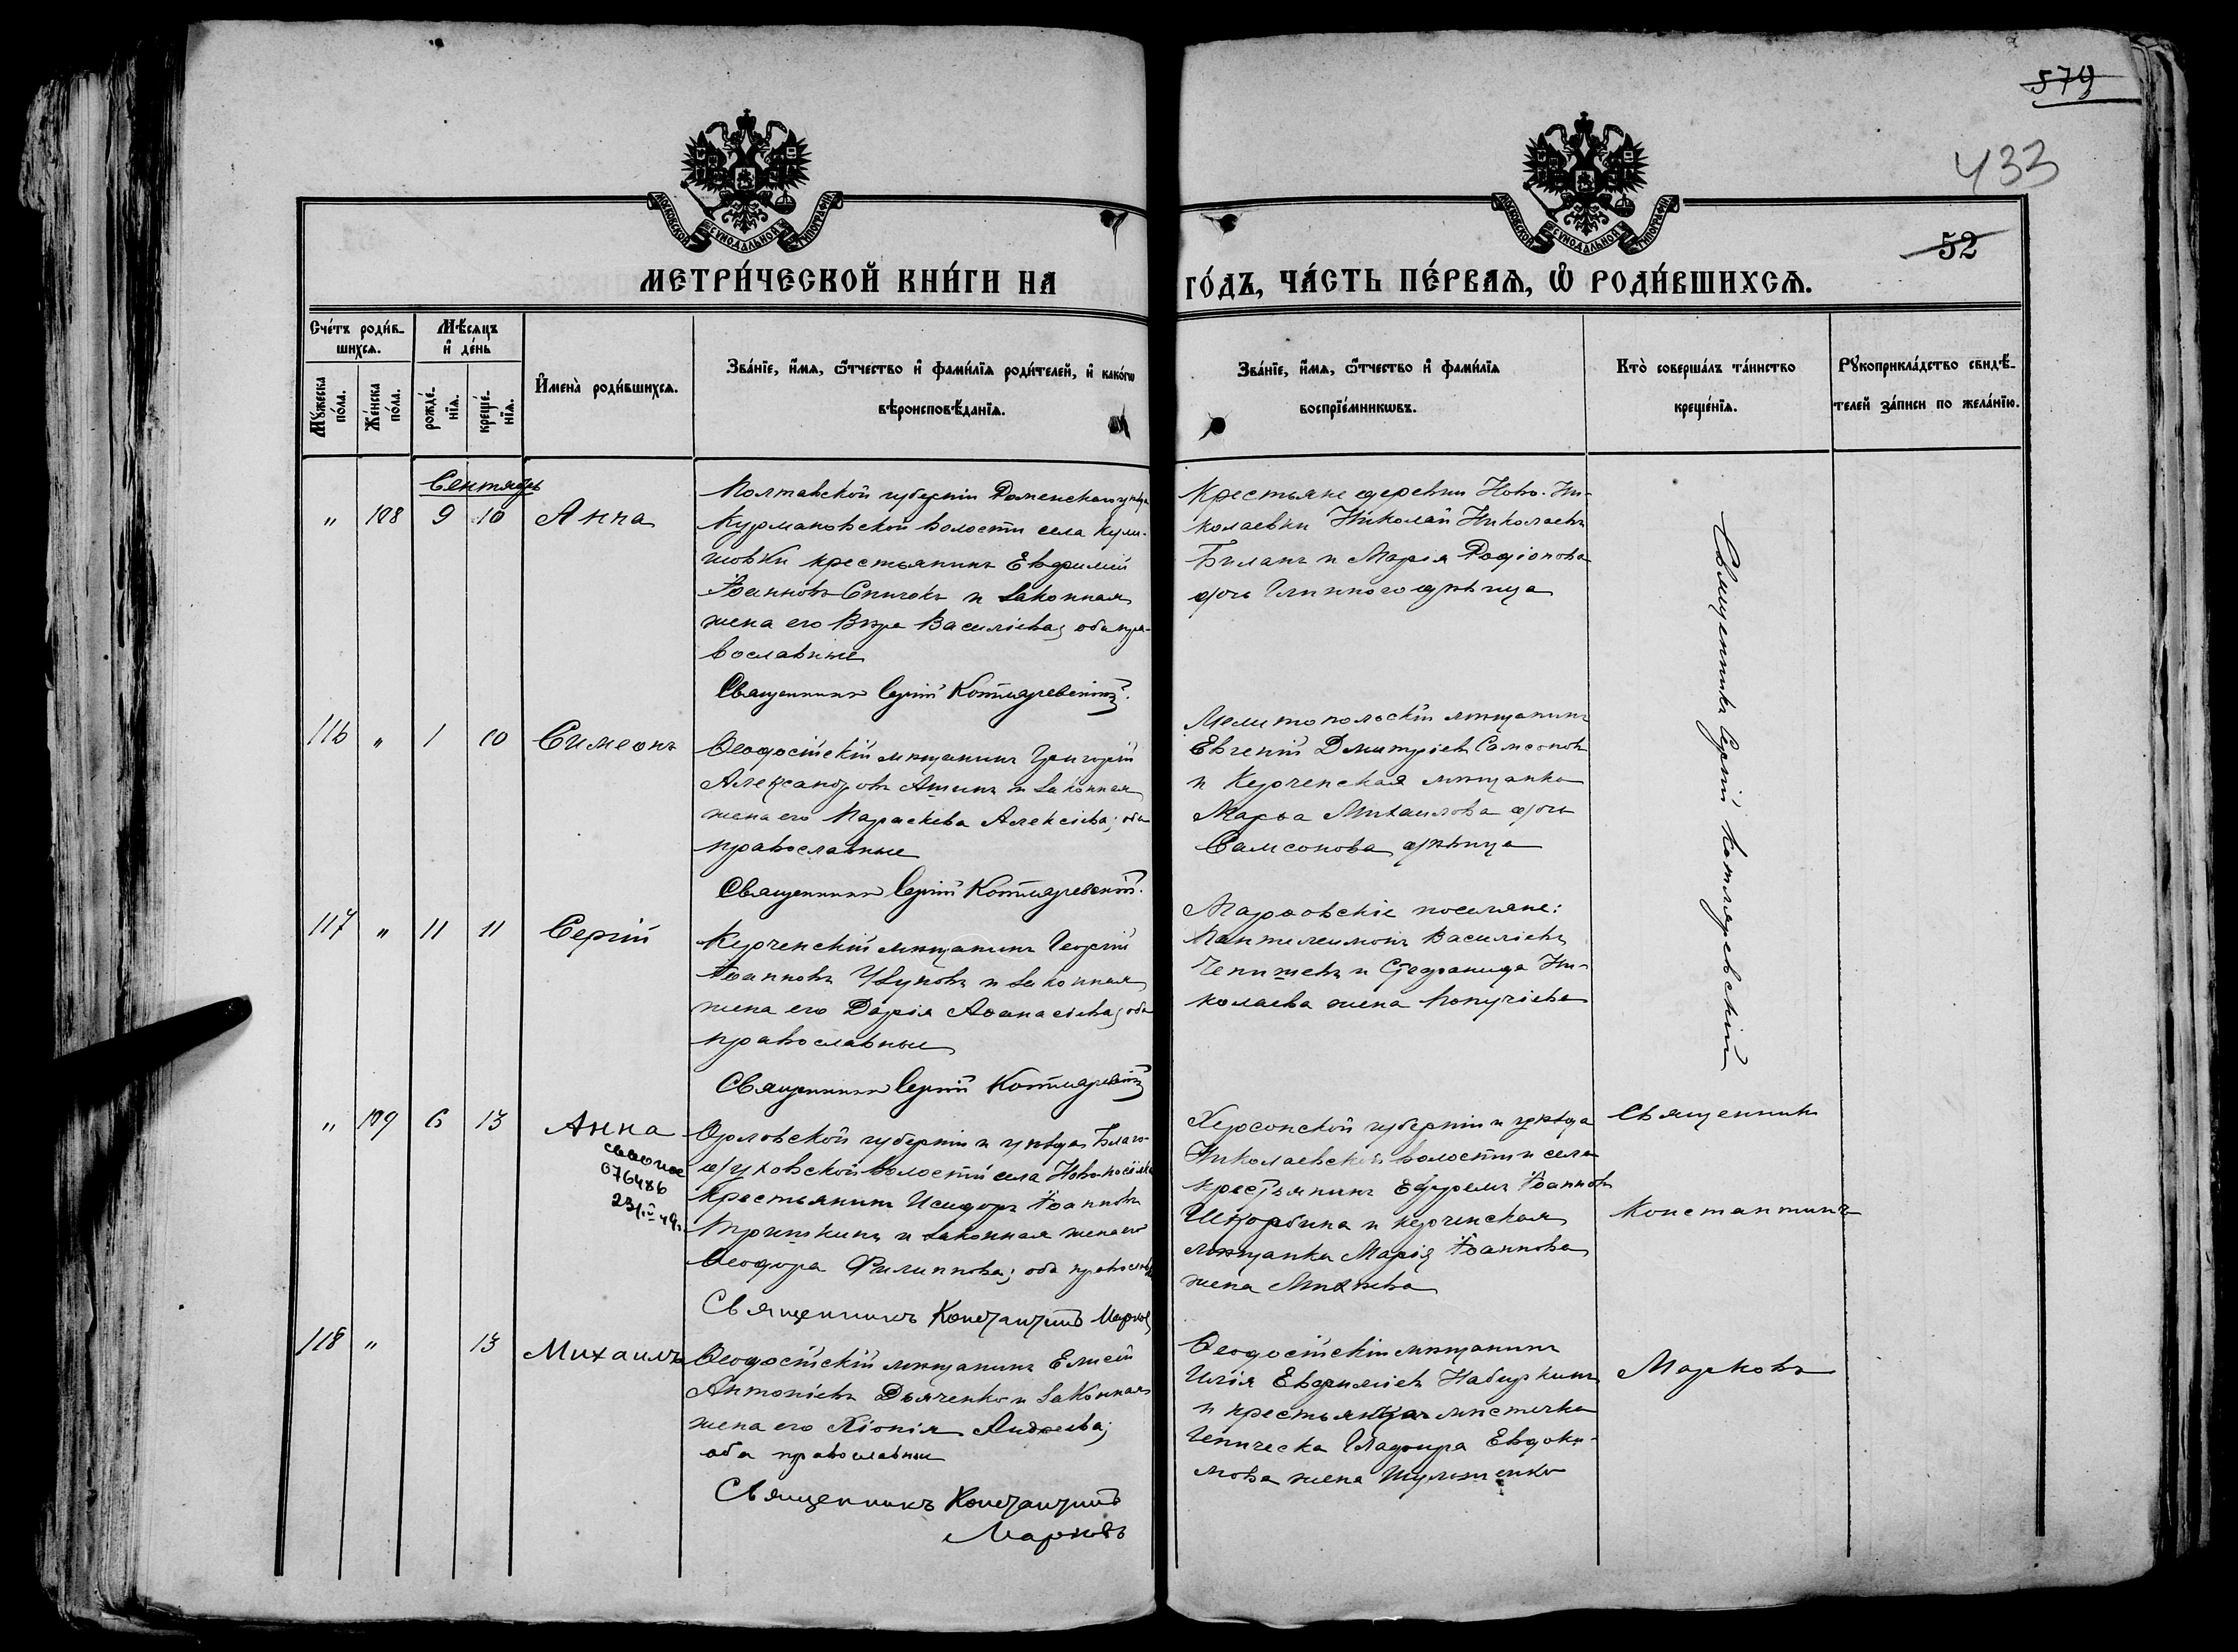 579
433
52
МОСКОВСКОЙ СѴНОДАЛЬНОЙ ТИПОГРАФІИ
МОСКОВСКОЙ СѴНОДАЛЬНОЙ ТИПОГРАФІИ
МЕТРИ́ЧЕСКОЙ КНИ́ГИ НА ГО́ДЪ, ЧА́СТЬ ПЕ́РВАѦ, Ѽ РОДИ́ВШИХСѦ.
Сче́тъ роди́в-
шихсѧ.
Мѣ́сѧцъ
и҆ де́нь
Мꙋ́жеска
по́ла.
Же́нска
по́ла.
рожде́-
нїѧ.
креще́-
нїѧ.
И҆мена̀ роди́вшихсѧ.
Зва́нїе, и҆́мѧ, ѻ҆́тчество и҆ фами́лїѧ роди́телей, и҆ како́гѡ
вѣроисповѣ́данїѧ.
Зва́нїе, и҆́мѧ, ѻ҆́тчество и҆ фами́лїѧ
воспрїе́мникѡвъ.
Кто̀ соверша́лъ та́инство
креще́нїѧ.
Рꙋкоприкла́дство свидѣ́-
телей за́писи по жела́нїю.
Сентябрь
" 108 9 10 Анна
Полтавской губерніи Роменскаго уѣзда
Курмановской волости села Кули-
шовки крестьянинъ Евфимій
Іоанновъ Спичокъ и законная
жена его Вѣра Василіева; оба пра-
вославные
Священникъ Сергій Котляревскій.
Крестьяне деревни Ново-Ни-
колаевки Николай Николаевъ
Биланъ и Марія Родіонова
дочь дѣвица
Священникъ Сергій Котляревскій
116 " 1 10 Симеонъ
Ѳеодосійскій мѣщанинъ Григорій
Александровъ Ашинъ и законная
жена его Параскева Алексіева; оба
православные
Священникъ Сергій Котляревскій.
Мелитопольскій мѣщанинъ
Евгеній Дмитріевъ Самсоновъ
и Керченская мѣщанка
Марѳа Михаилова дочь
Самсонова дѣвица
117 " 11 11 Сергій
Керченскій мѣщанинъ Георгій
Іоанновъ и законная
жена его Дарія Аѳанасіева; оба
православные
Священникъ Сергій Котляревскій
Марѳовскіе поселяне:
Пантелеимонъ Василіевъ
и Стефанида Ни-
колаева жена
" 109 6 13 Анна
076486
Орловской губерніи и уѣзда Благо-
духовской волости села
крестьянинъ Исидоръ Іоанновъ
Тришкинъ и законная жена его
Ѳеодора Филиппова; оба правосл
Священникъ Константинъ Марковъ
Херсонской губерніи и уѣзда
Николаевской волости и села
крестьянинъ Ефремъ Іоанновъ
Шкорбина и керченская
мѣщанка Марія Іоаннова
жена
Священникъ
Константинъ
Марковъ
118 " 13 Михаилъ
Ѳеодосійскій мѣщанинъ Елисей
Антоніевъ Дьяченко и законная
жена его Хіонія
оба православные
Священникъ Константинъ
Марковъ
Ѳеодосійскій мѣщанинъ
Илія Евфиміевъ Набиркинъ
и крестьянка мѣстечка
Геническа Гладфира Евдоки-
мова жена